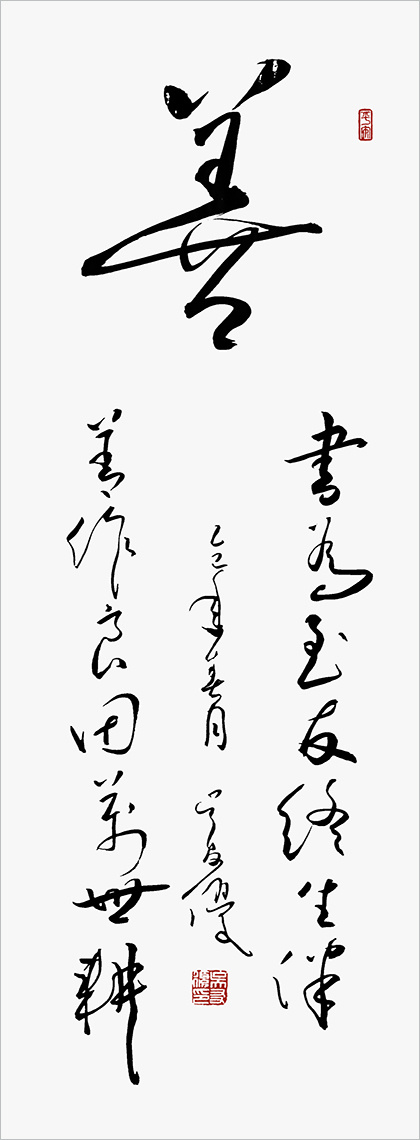 善
書為至友終生
善作良田萬世耕
乙巳年春月